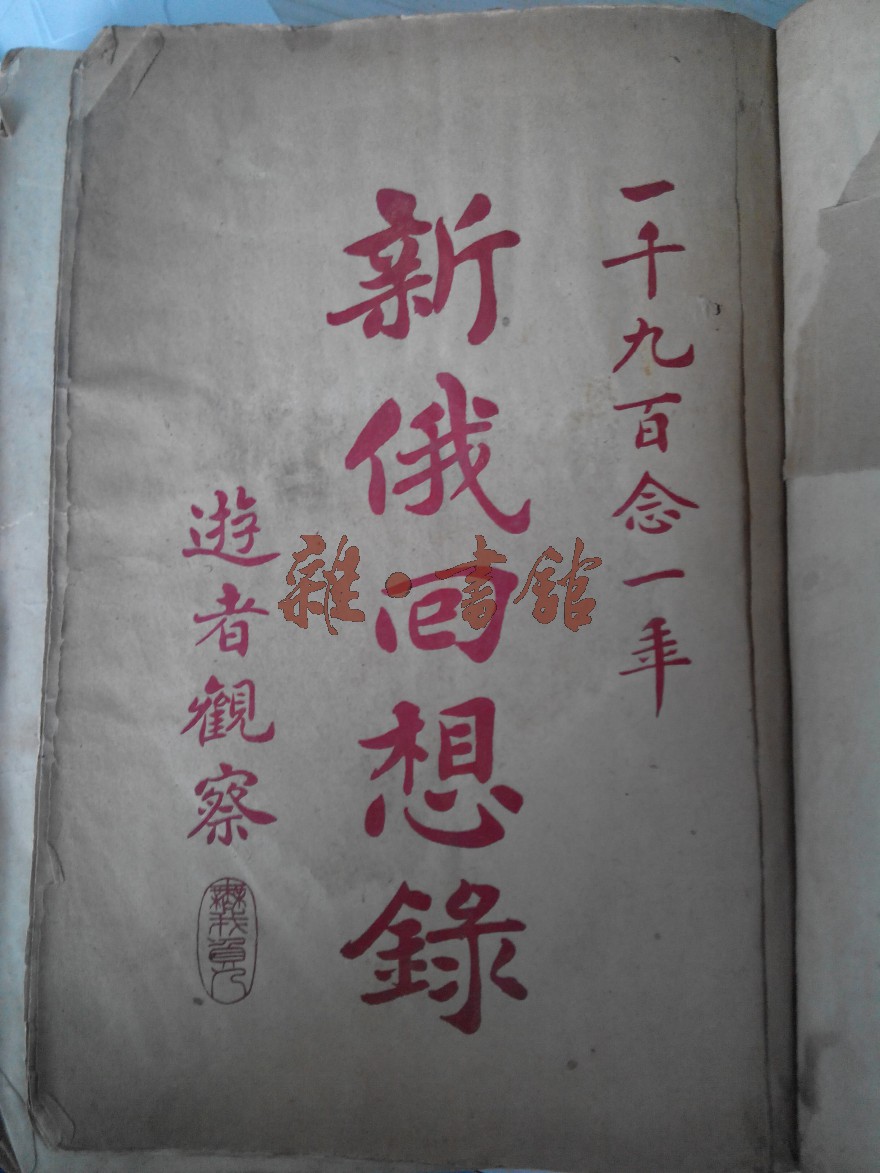 一千九百念一年
新俄回想錄
遊者觀察
雜·書館